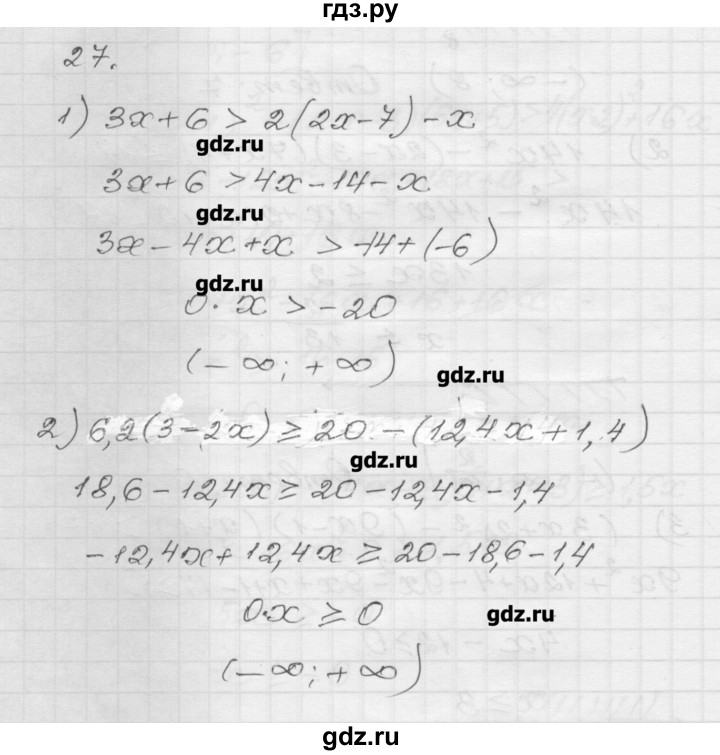 гдз.ру
27.
1) 3x + 6 > 2(2x - 7) - x
gdz.ru
3x + 6 > 4x - 14 - x
gdz.ru
3x - 4x + x > -14 + (-6)
gdz.ru
0 · x > -20
(-∞; +∞)
gdz.ru
2) 6,2(3 - 2x) ≥ 20 - (12,4x + 1,4)
gdz.ru
18,6 - 12,4x ≥ 20 - 12,4x - 1,4
-12,4x + 12,4x ≥ 20 - 18,6 - 1,4
0·x ≥ 0
gdz.ru
(-∞; +∞)
gdz.ru